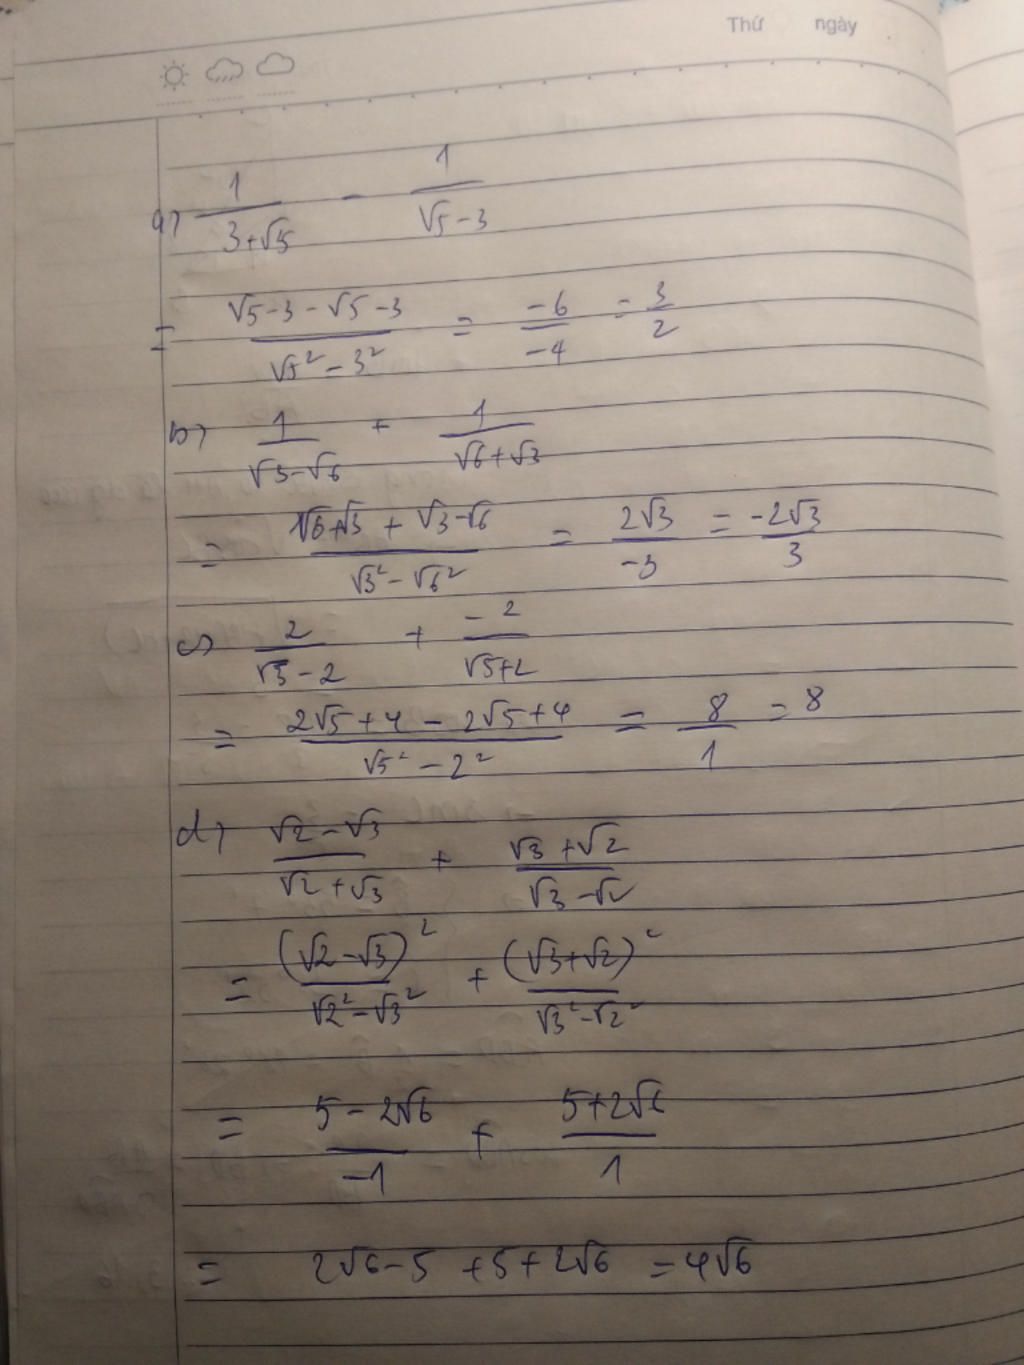 Thứ ngày
a) 1/(3+√5) - 1/(√5-3)
= (√5-3-√5-3)/(√5²-3²) = -6/-4 = 3/2
b) 1/(√3-√6) + 1/(√6+√3)
= (√6+√3+√3-√6)/(√3²-√6²) = 2√3/-3 = -2√3/3
c) 2/(√5-2) + -2/(√5+2)
= (2√5+4-2√5+4)/(√5²-2²) = 8/1 = 8
d) (√2-√3)/(√2+√3) + (√3+√2)/(√3-√2)
= (√2-√3)²/(√2²-√3²) + (√3+√2)²/(√3²-√2²)
= (5-2√6)/-1 + (5+2√6)/1
= 2√6-5+5+2√6 = 4√6